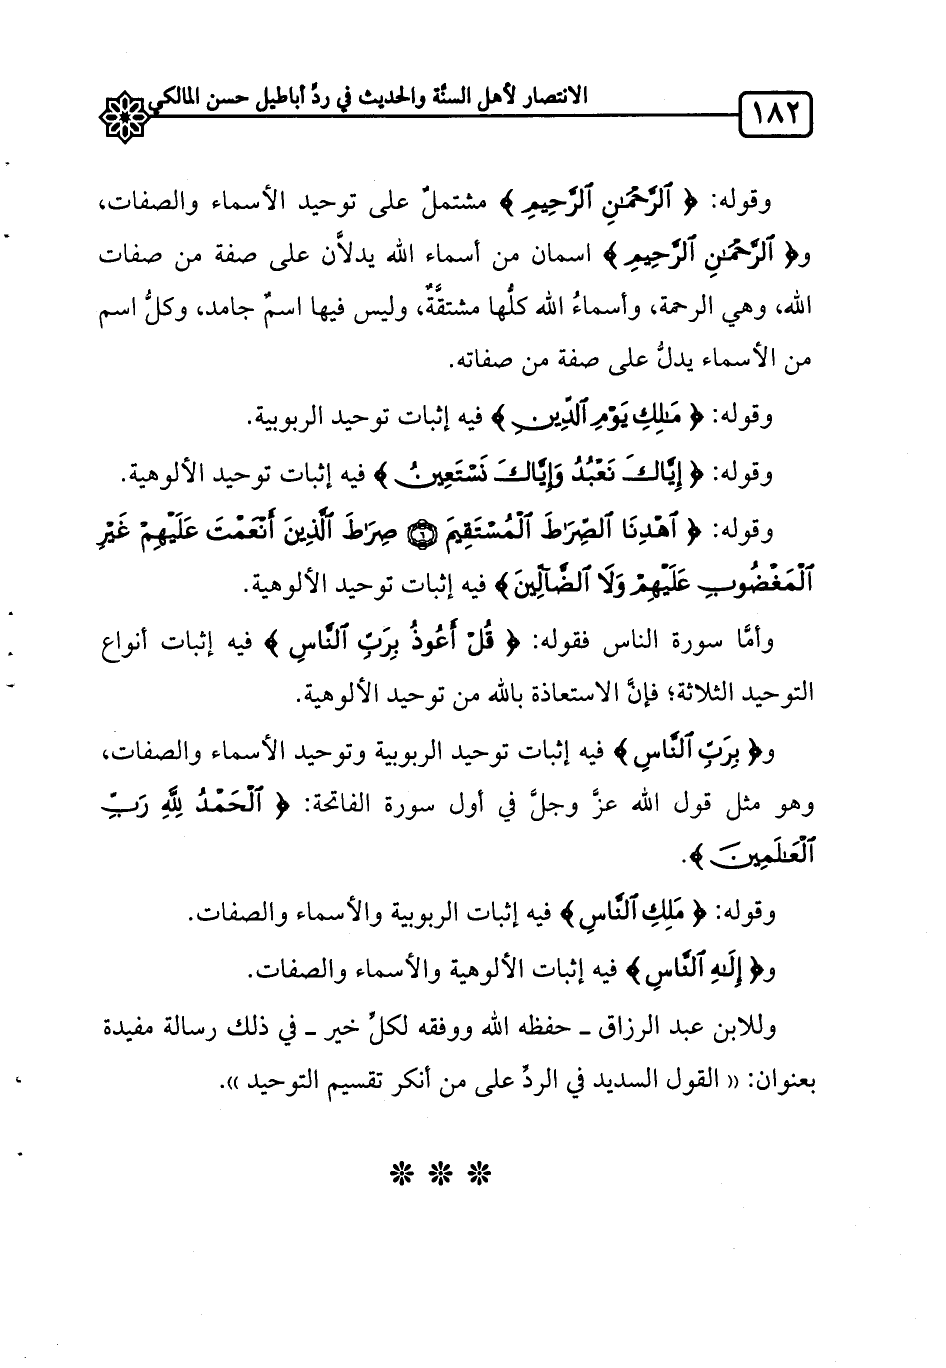 ١٨٢
الانتصار لأهل السنَّة والحديث في ردِّ أباطيل حسن المالكي
وقوله: ﴿ ٱلرَّحْمَـٰنِ ٱلرَّحِيمِ ﴾ مشتملٌ على توحيد الأسماء والصفات،
و﴿ ٱلرَّحْمَـٰنِ ٱلرَّحِيمِ ﴾ اسمان من أسماء الله يدلاَّن على صفة من صفات
الله، وهي الرحمة، وأسماءُ الله كلُّها مشتقَّةٌ، وليس فيها اسمٌ جامد، وكلُّ اسم
من الأسماء يدلُّ على صفة من صفاته.
وقوله: ﴿ مَـٰلِكِ يَوْمِ ٱلدِّينِ ﴾ فيه إثبات توحيد الربوبية.
وقوله: ﴿ إِيَّاكَ نَعْبُدُ وَإِيَّاكَ نَسْتَعِينُ ﴾ فيه إثبات توحيد الألوهية.
وقوله: ﴿ ٱهْدِنَا ٱلصِّرَٰطَ ٱلْمُسْتَقِيمَ ۝٦ صِرَٰطَ ٱلَّذِينَ أَنْعَمْتَ عَلَيْهِمْ غَيْرِ
ٱلْمَغْضُوبِ عَلَيْهِمْ وَلَا ٱلضَّآلِّينَ ﴾ فيه إثبات توحيد الألوهية.
وأمَّا سورة الناس فقوله: ﴿ قُلْ أَعُوذُ بِرَبِّ ٱلنَّاسِ ﴾ فيه إثبات أنواع
التوحيد الثلاثة؛ فإنَّ الاستعاذة بالله من توحيد الألوهية.
و﴿ بِرَبِّ ٱلنَّاسِ ﴾ فيه إثبات توحيد الربوبية وتوحيد الأسماء والصفات،
وهو مثل قول الله عزَّ وجلَّ في أول سورة الفاتحة: ﴿ ٱلْحَمْدُ لِلَّهِ رَبِّ
ٱلْعَـٰلَمِينَ ﴾.
وقوله: ﴿ مَلِكِ ٱلنَّاسِ ﴾ فيه إثبات الربوبية والأسماء والصفات.
و﴿ إِلَـٰهِ ٱلنَّاسِ ﴾ فيه إثبات الألوهية والأسماء والصفات.
وللابن عبد الرزاق ـ حفظه الله ووفقه لكلِّ خير ـ في ذلك رسالة مفيدة
بعنوان: « القول السديد في الردِّ على من أنكر تقسيم التوحيد ».